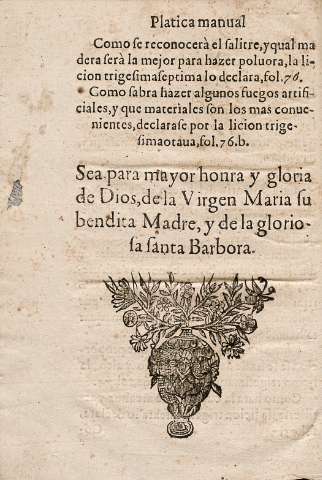 Platica manual
Como se reconocerà el salitre, y qual ma
dera serà la mejor para hazer poluora, la li
cion trigesimaseptima lo declara, fol. 76.
Como sabra hazer algunos fuegos artifi-
ciales, y que materiales son los mas conue-
nientes, declarase por la licion trige-
simaotaua, fol. 76. b.
Sea para mayor honra y gloria
de Dios, de la Virgen Maria su
bendita Madre, y de la glorio-
sa santa Barbora.